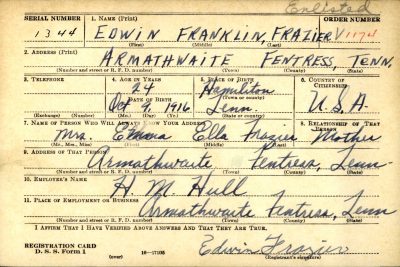 Enlisted
SERIAL NUMBER 1. NAME (Print) ORDER NUMBER
1344 EDWIN FRANKLIN, FRAZIER V1174
(First) (Middle) (Last)
2. ADDRESS (Print)
ARMATHWAITE FENTRESS, TENN.
(Number and street or R. F. D. number) (Town) (County) (State)
3. TELEPHONE 4. AGE IN YEARS 5. PLACE OF BIRTH 6. COUNTRY OF CITIZENSHIP
24 Hamilton
DATE OF BIRTH (Town or county)
Oct 9, 1916 Tenn. U.S.A.
(Exchange) (Number) (Mo.) (Day) (Yr.) (State or country)
7. NAME OF PERSON WHO WILL ALWAYS KNOW YOUR ADDRESS 8. RELATIONSHIP OF THAT PERSON
Mrs. Emma Ella Frazier Mother
(Mr., Mrs., Miss) (First) (Middle) (Last)
9. ADDRESS OF THAT PERSON
Armathwaite Fentress, Tenn
(Number and street or R. F. D. number) (Town) (County) (State)
10. EMPLOYER'S NAME
H. M. Hull
11. PLACE OF EMPLOYMENT OR BUSINESS
Armathwaite Fentress, Tenn
(Number and street or R. F. D. number) (Town) (County) (State)
I AFFIRM THAT I HAVE VERIFIED ABOVE ANSWERS AND THAT THEY ARE TRUE.
REGISTRATION CARD
D. S. S. Form 1 (over) 16-17105 Edwin Frazier
(Registrant's signature)